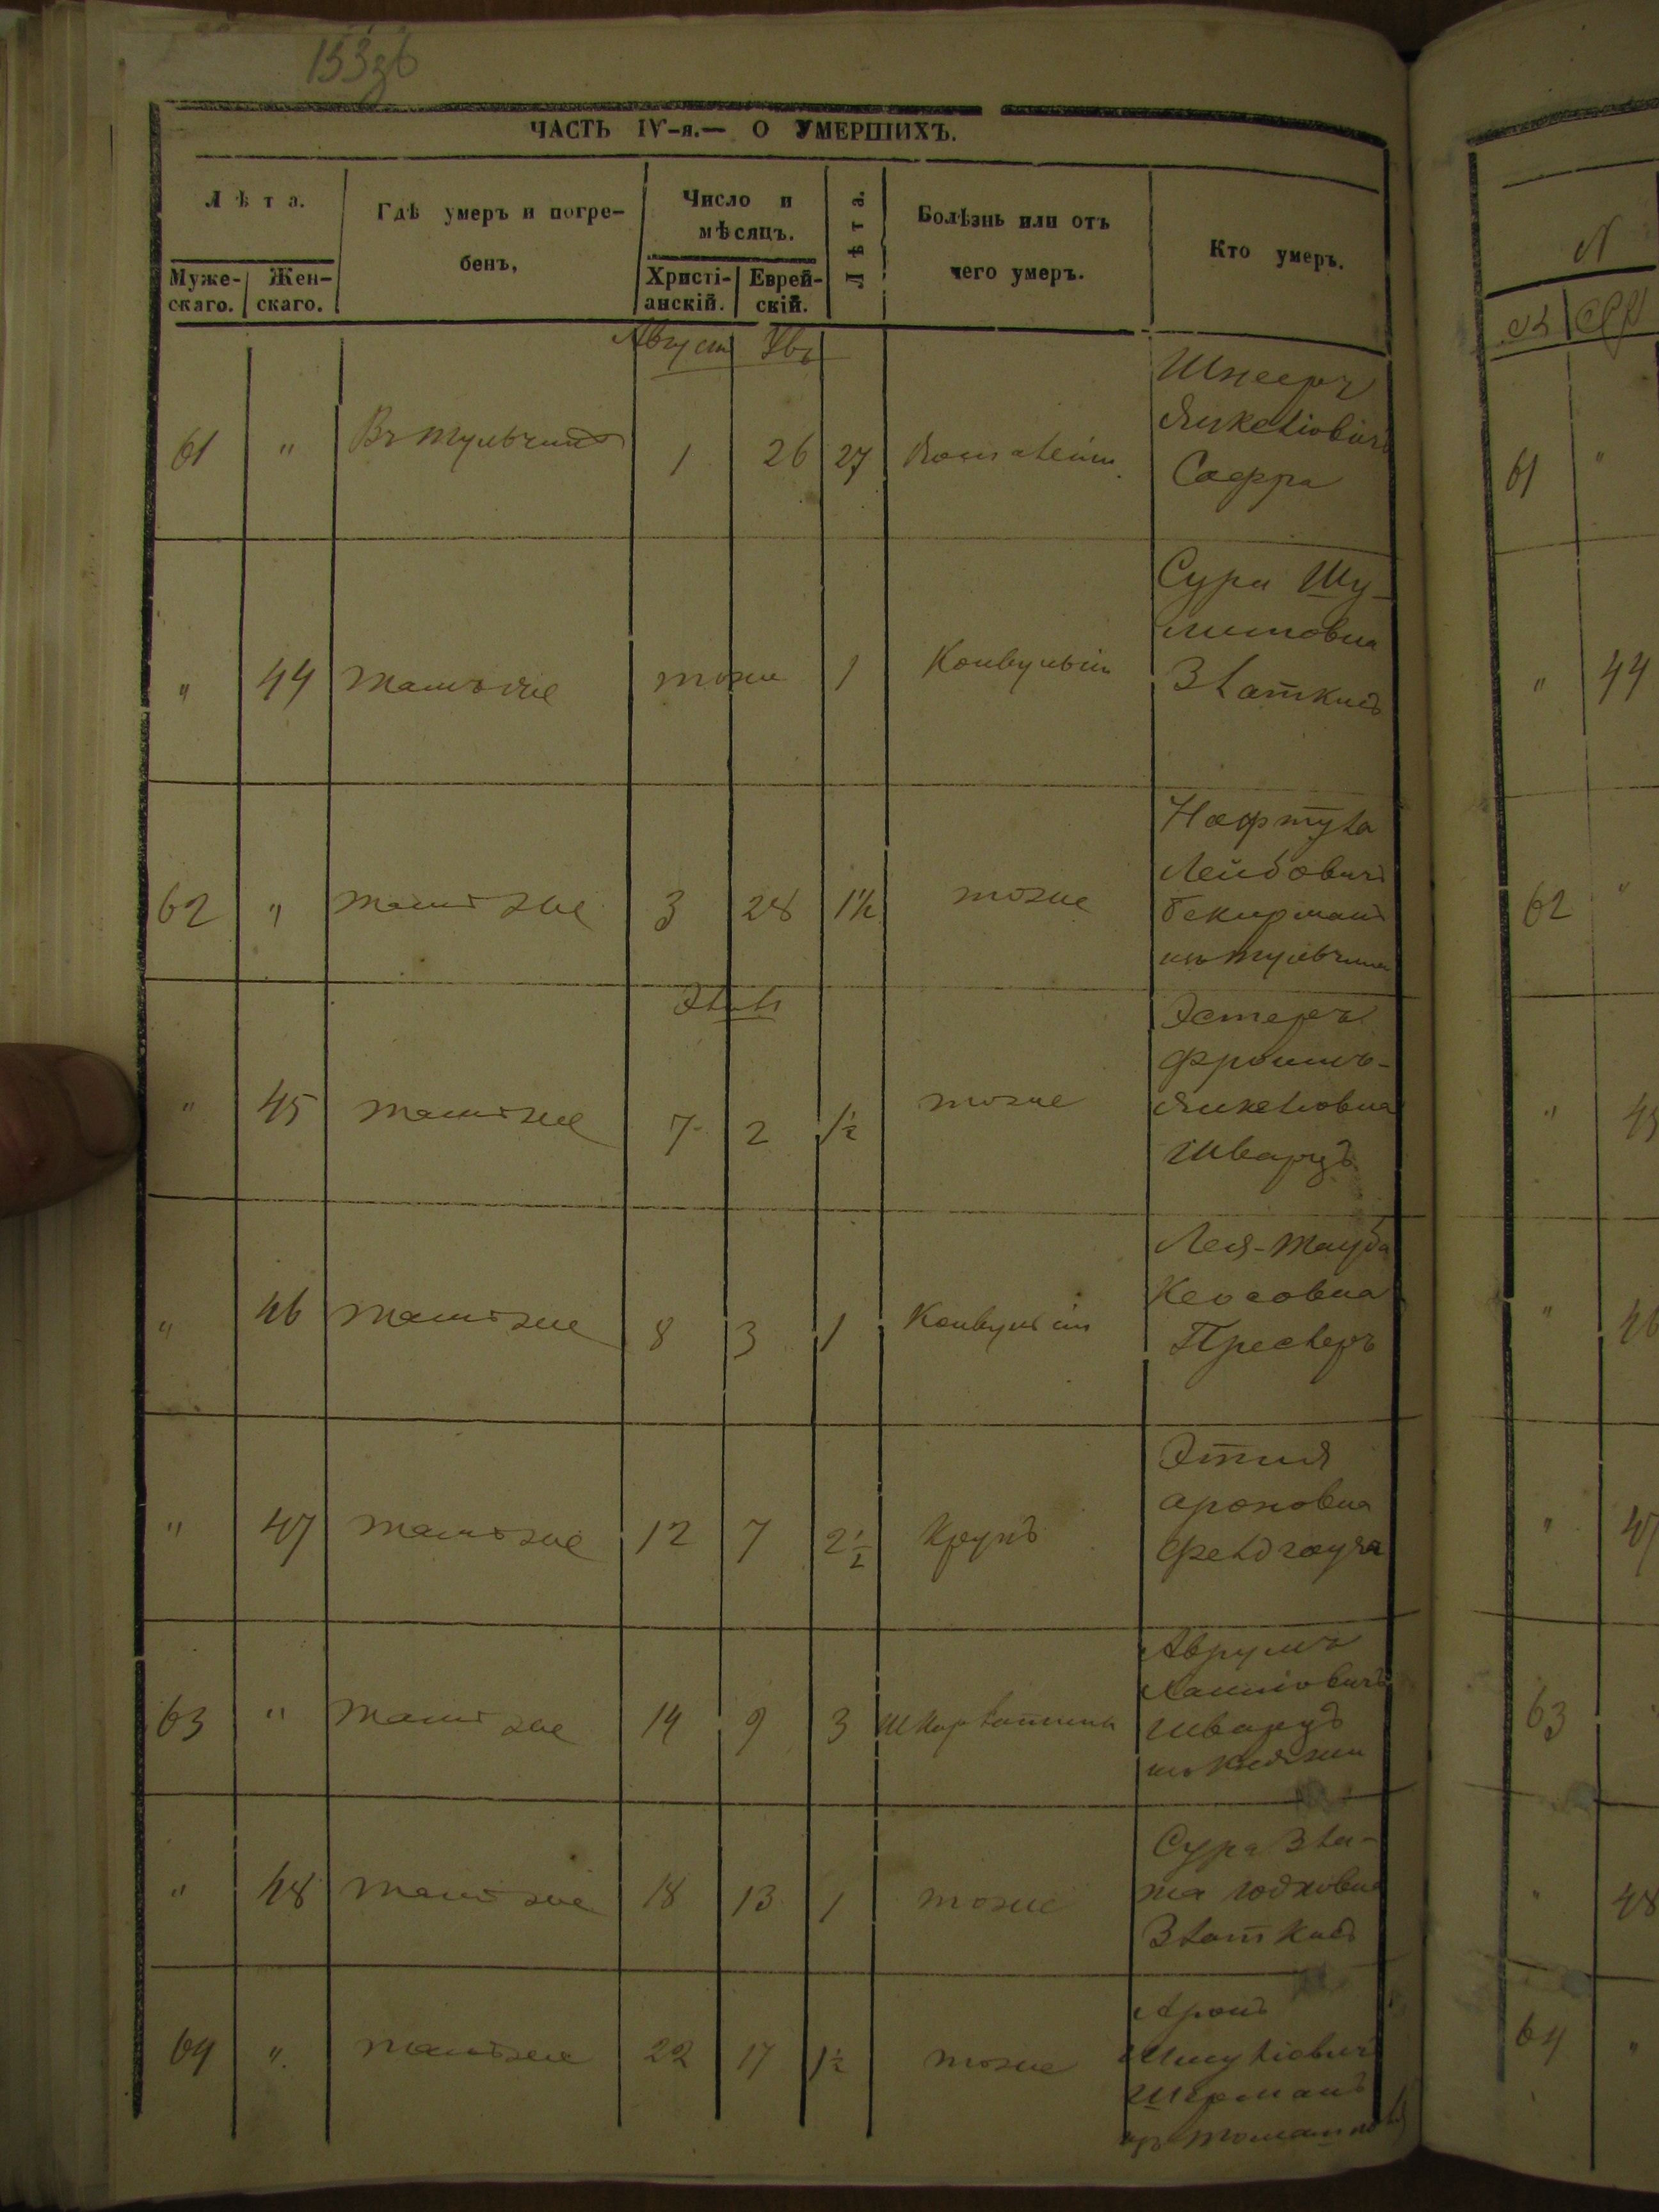 153зв
ЧАСТЬ IV-я.— О УМЕРШИХЪ.
Лѣта.
Муже-
скаго.
Жен-
скаго.
Гдѣ умеръ и погре-
бенъ,
Число и
мѣсяцъ.
Христі-
анскій.
Еврей-
скій.
Лѣта.
Болѣзнь или отъ
чего умеръ.
Кто умеръ.
Августъ
61 " Въ Тульчинѣ 1 26 27
Шнееръ
Янкеліовичъ
Сафра
" 44 тамъ же тоже 1 Конвульсіи
Сура Шу-
лимовна
Златкисъ
62 " тамъ же 3 28 1½ тоже
Нафтула
Лейбовичъ
изъ Тульчина
Элулъ
" 45 тамъ же 7 2 ½ тоже
Эстеръ
Фроимъ-
Янкеліовна
Шварцъ
" 46 тамъ же 8 3 1 Конвульсіи
Лея-Тауба
Преслеръ
" 47 тамъ же 12 7 2½ Крупъ
Этля
Ароновна
63 " тамъ же 14 9 3 Шкарлатина
Аврумъ
Шварцъ
" 48 тамъ же 18 13 1 тоже
Сура Зла-
та
Златкисъ
64 " тамъ же 22 17 1½ тоже
Аронъ
Шмуліовичъ
Шерманъ
61 "
" 44
62 "
" 45
" 46
" 47
63
" 48
64 "